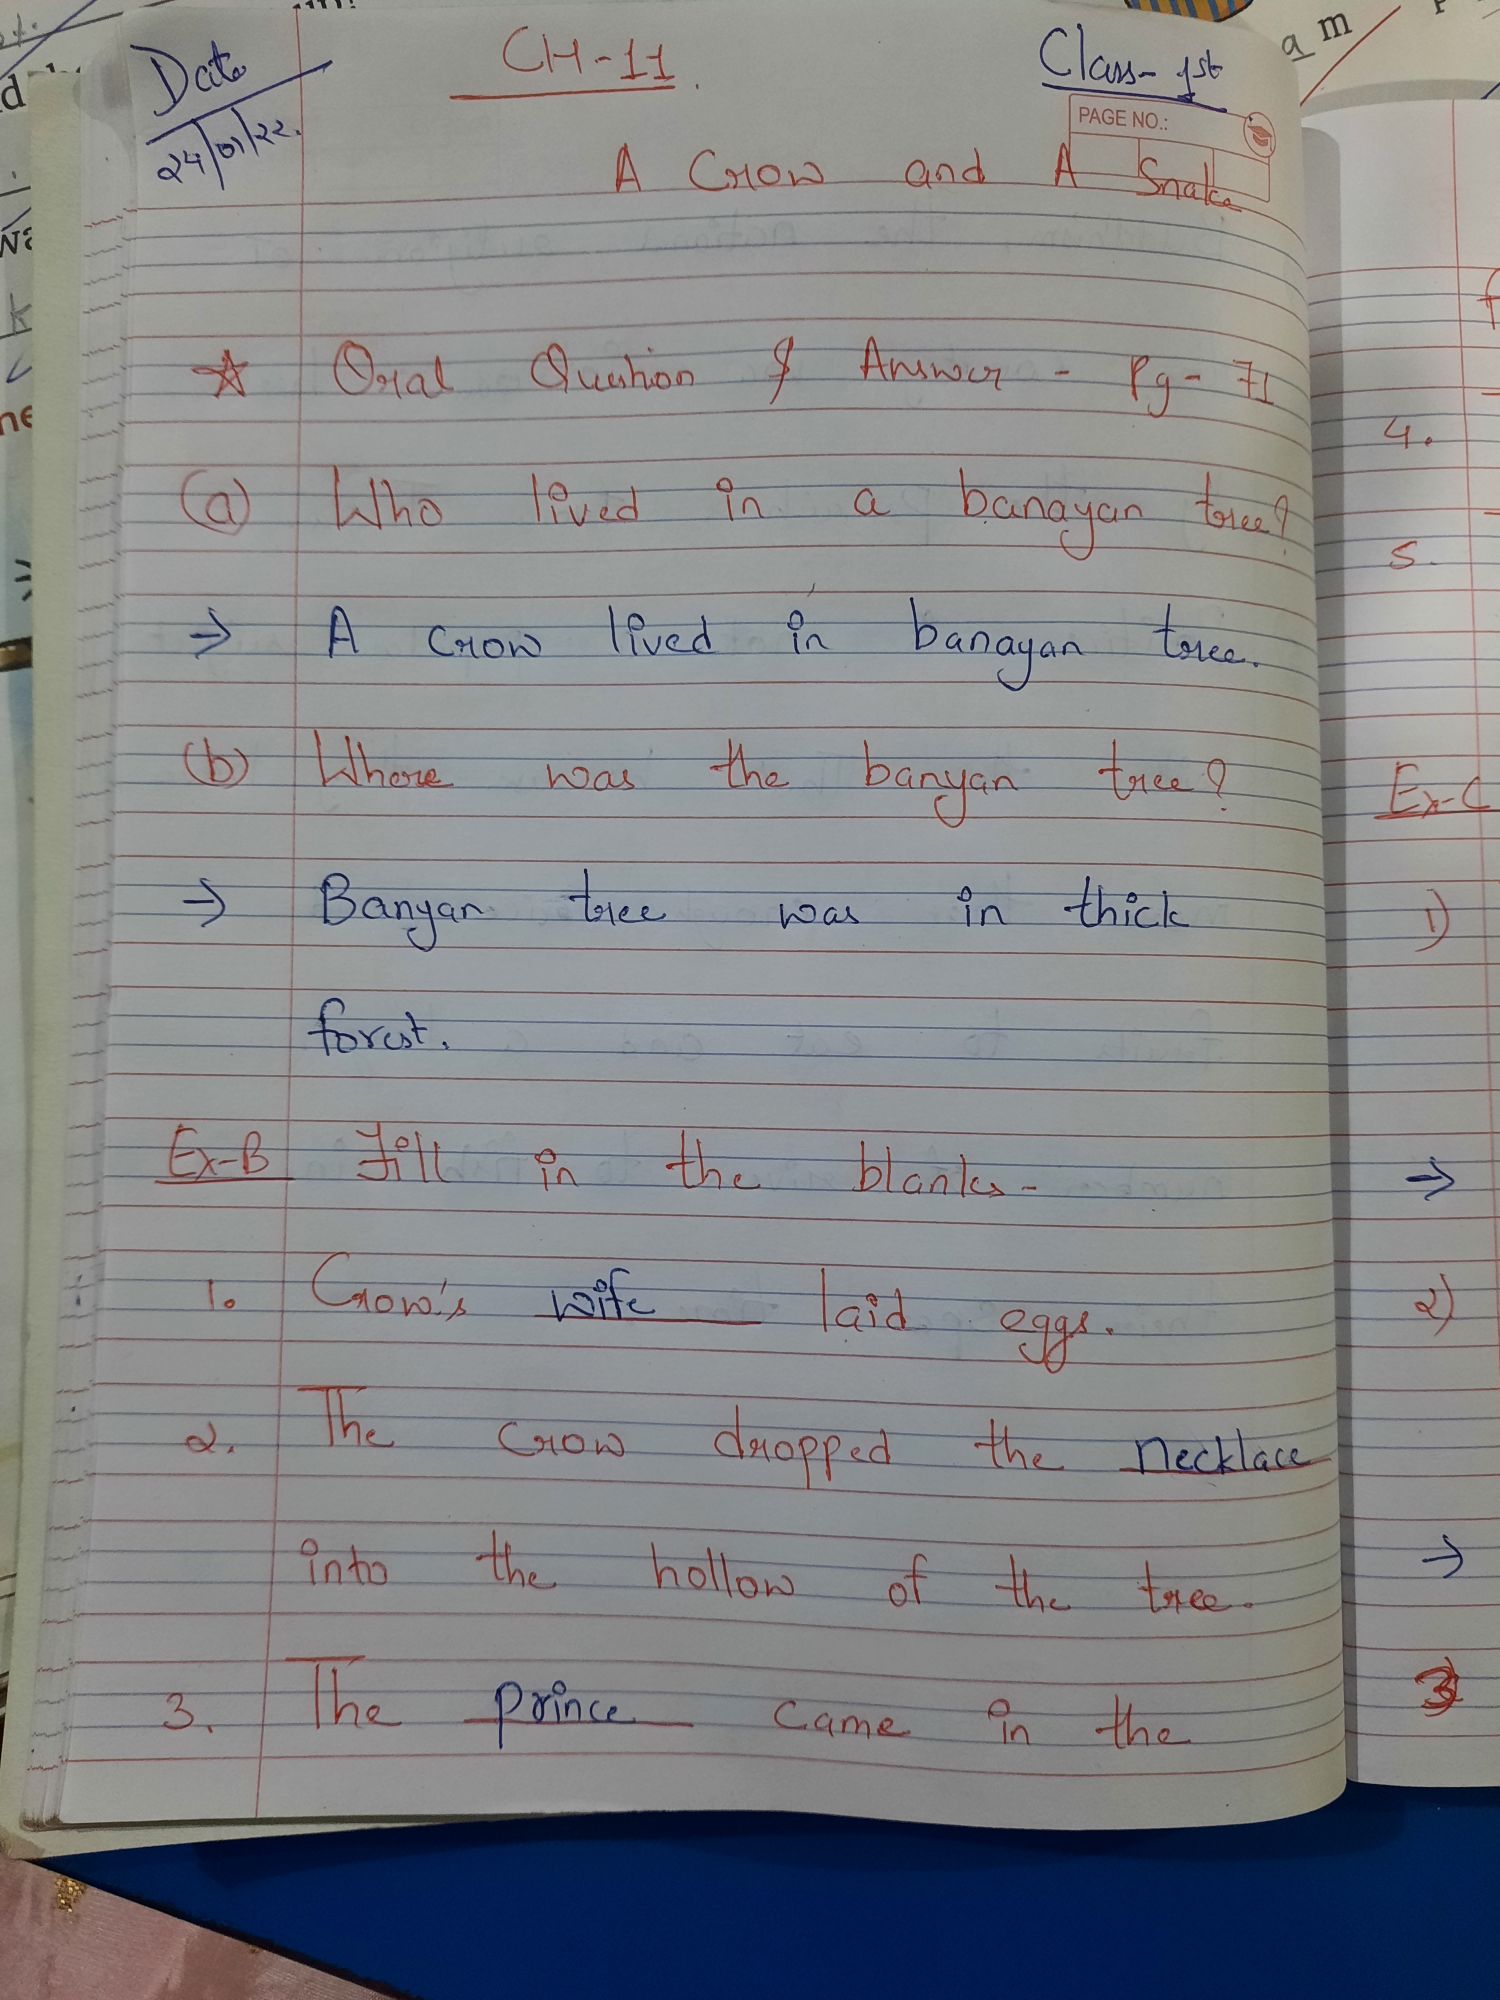 Date
24/01/22.
CH-11.
Class- 1st
PAGE NO.:
A Crow and A Snake
☆ Oral Question & Answer - Pg- 71
(a) Who lived in a banayan tree?
→ A crow lived in banayan tree.
(b) Where was the banyan tree?
→ Banyan tree was in thick
forest.
Ex-B Fill in the blanks-
1. Crow's wife laid eggs.
2. The crow dropped the necklace
into the hollow of the tree.
3. The prince came in the
4.
5.
Ex-C
1)
→
2)
→
3
am